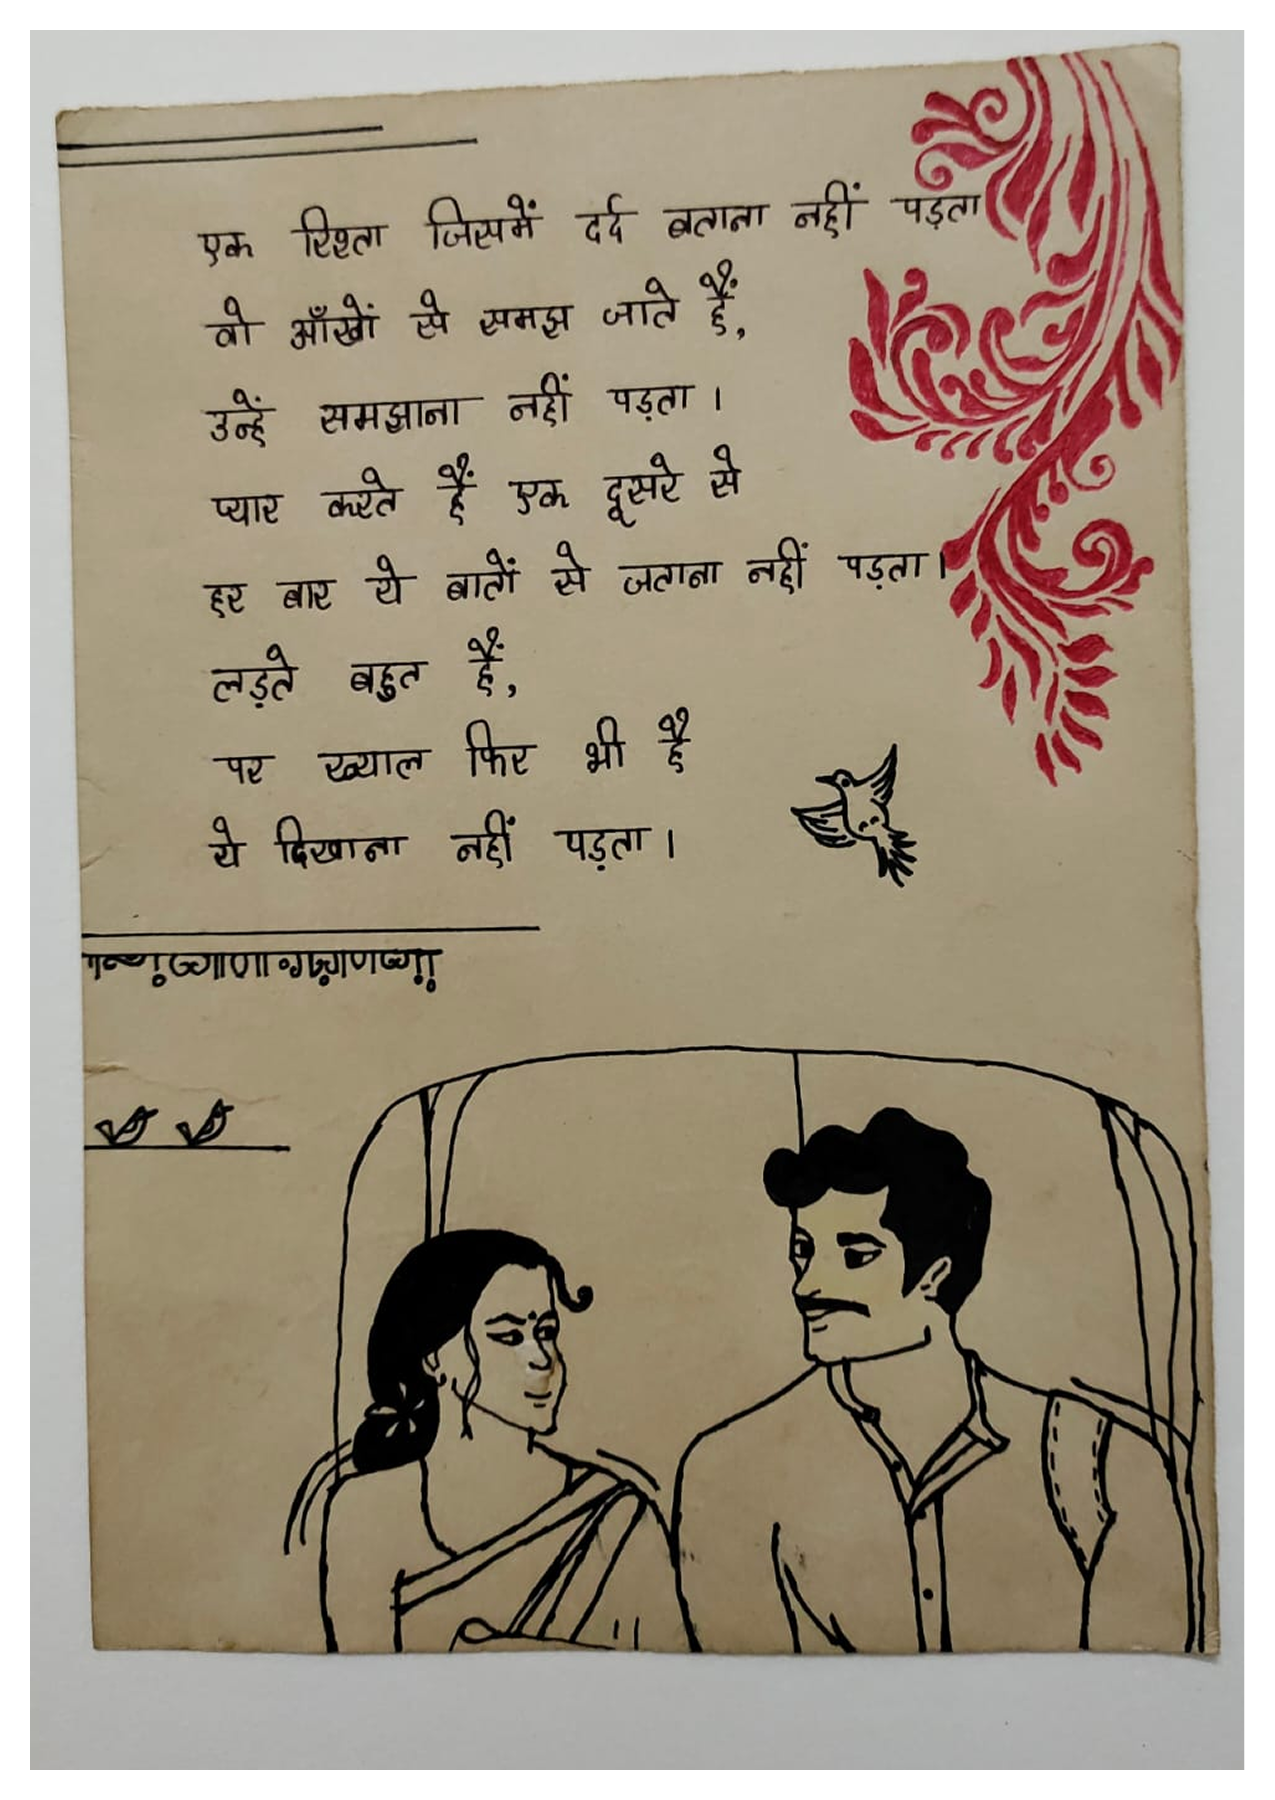 एक रिश्ता जिसमें दर्द बताना नहीं पड़ता
वो आँखों से समझ जाते हैं,
उन्हें समझाना नहीं पड़ता।
प्यार करते हैं एक दूसरे से
हर बार ये बातों से जताना नहीं पड़ता।
लड़ते बहुत हैं,
पर ख्याल फिर भी है
ये दिखाना नहीं पड़ता।